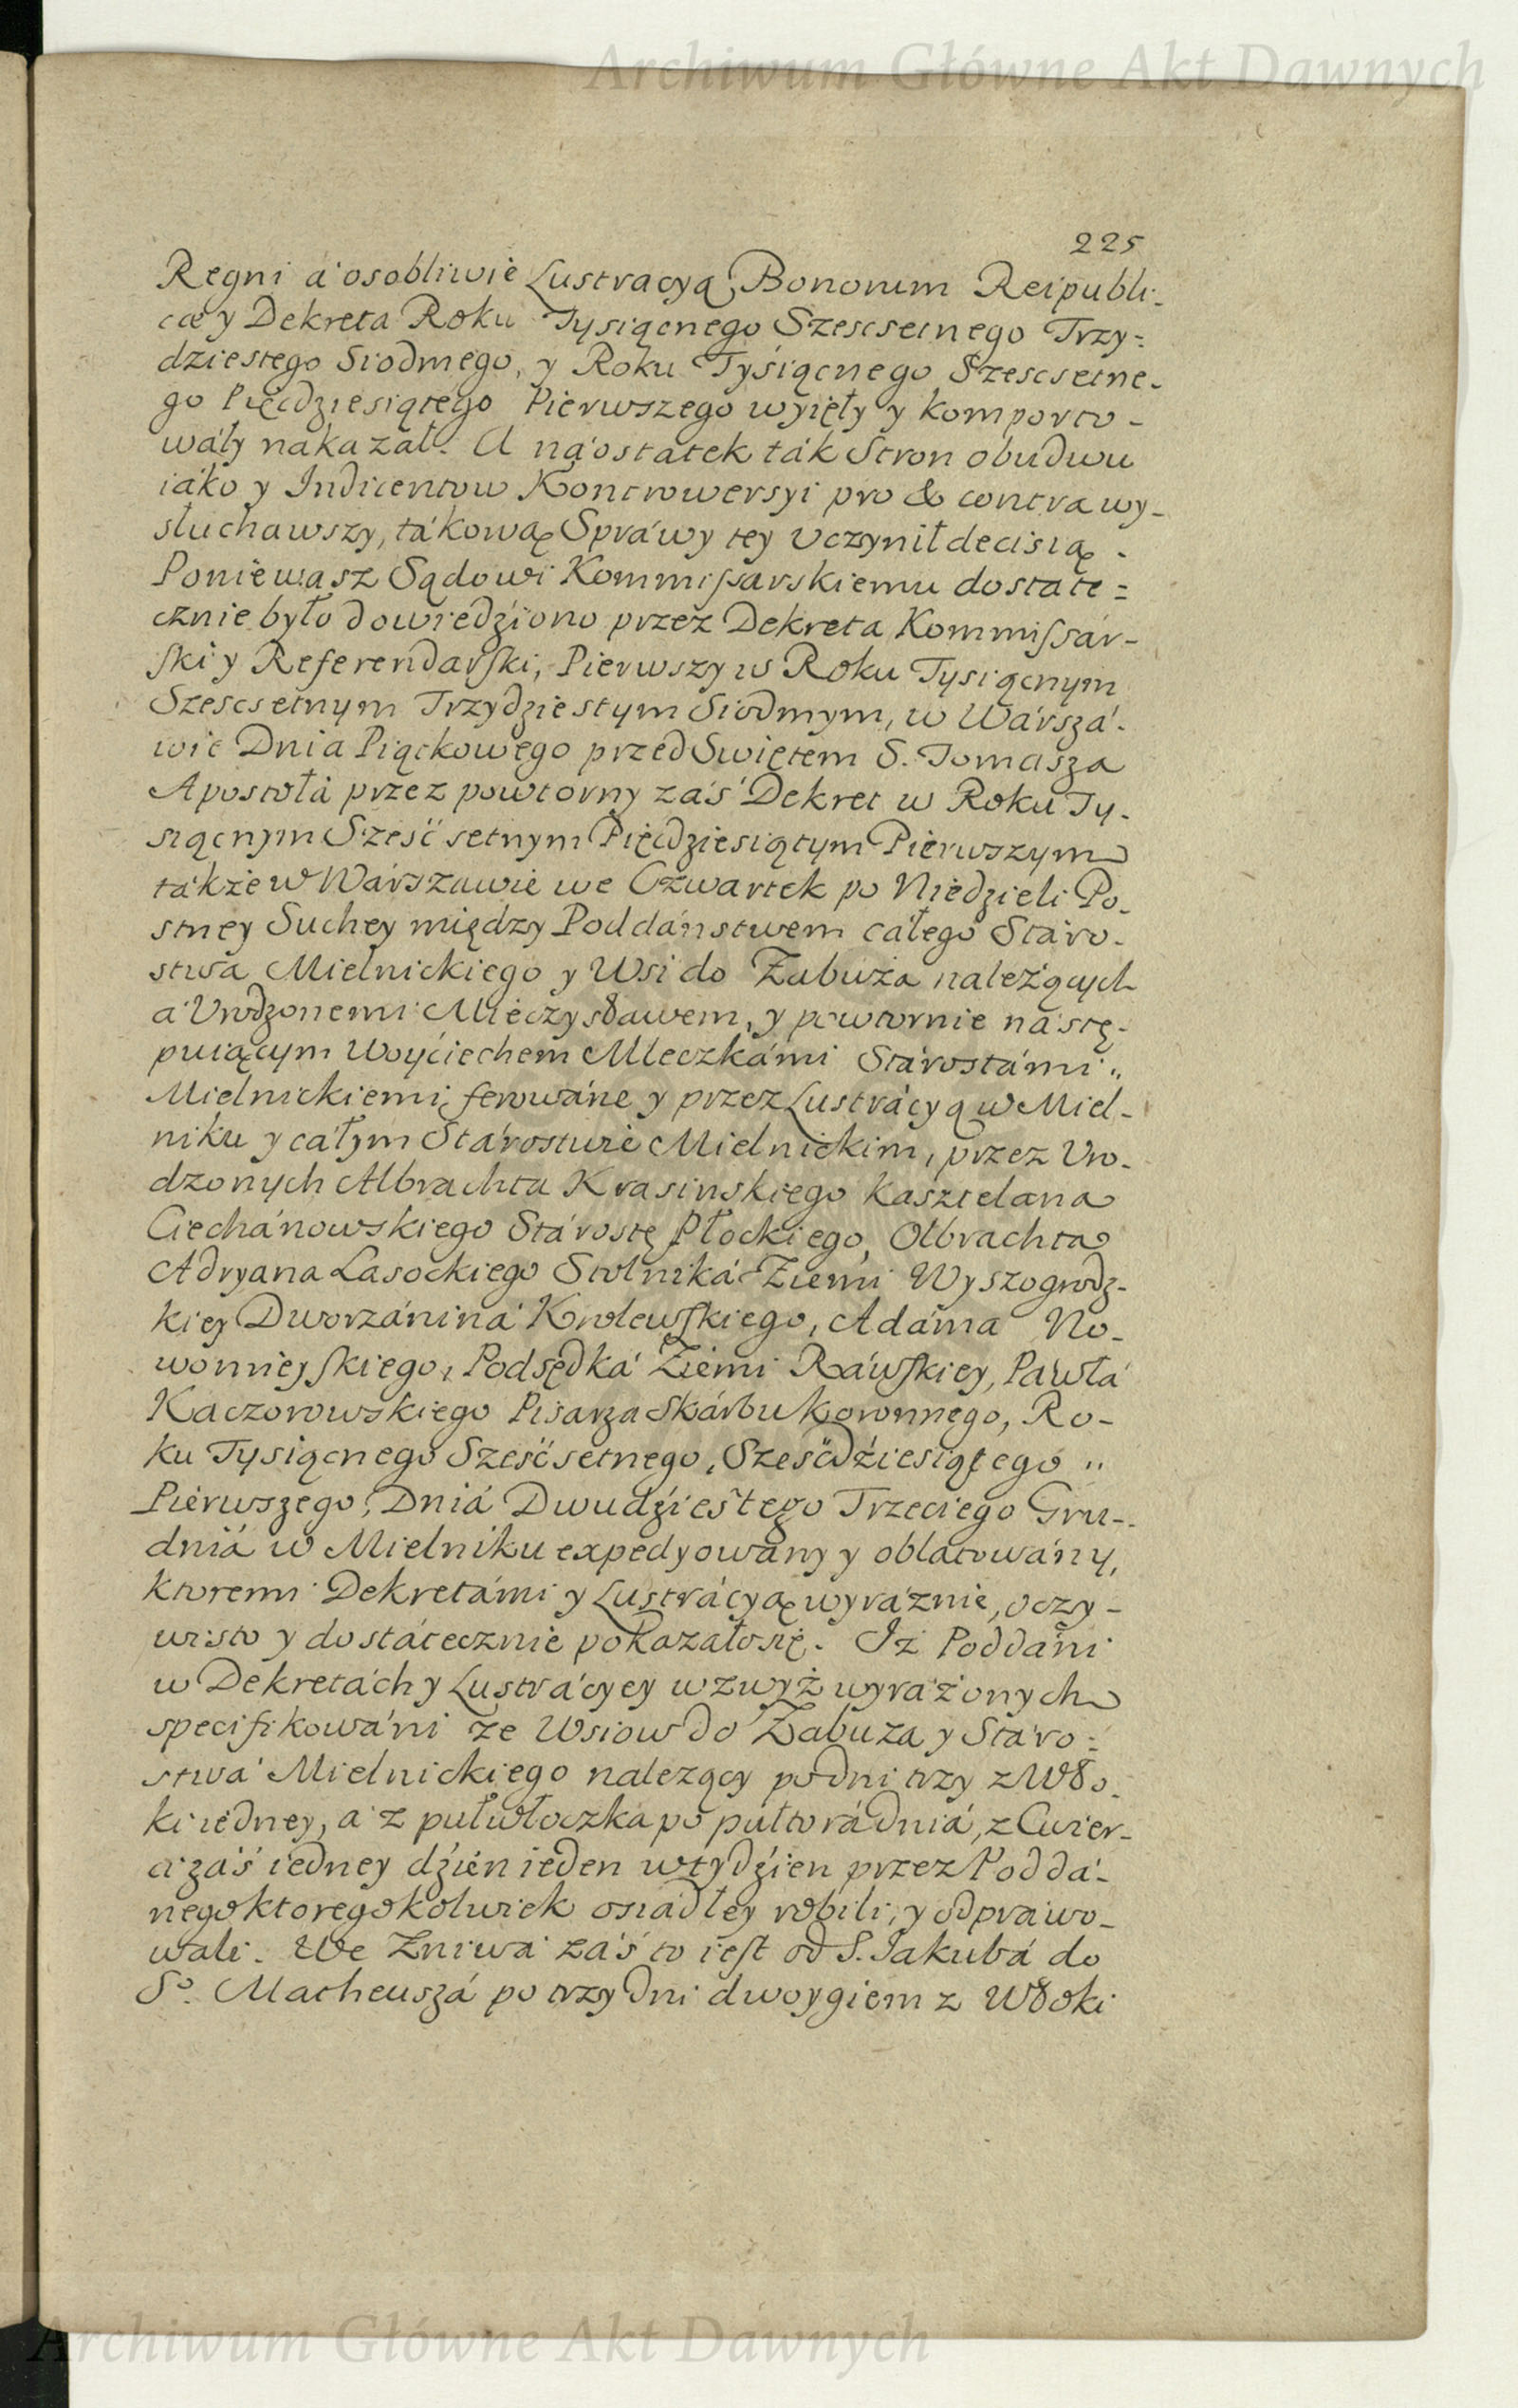 Archiwum Główne Akt Dawnych
225
Regni á osobliwie Lustracyą Bonorum Reipubli-
cæ y Dekreta Roku Tysiącnego Szescsetnego Trzy=
dziestego Siodmego, y Roku Tysiącnego Szescsetne-
go Pięcdziesiątego Pierwszego wyięły y komporto-
wáły nakazał. A náostatek ták Stron obudwu
iáko y Indicentow Kontrowersyi pro & contra wy-
słuchawszy, tákową Spráwy tey Uczynił decisią.
Poniewasz Sądowi Kommissarskiemu dostate=
cznie było dowiedźiono przez Dekreta Kommissár-
ski y Referendarski, Pierwszy w Roku Tysiącnym
Szescsetnym Trzydziestym Siodmym, w Wárszá-
wie Dnia Piątkowego przed Swiętem S. Tomasza
Apostołá przez powtorny záś Dekret w Roku Ty-
siącnym Sześćsetnym Pięcdziesiątym Pierwszym
tákże w Wárszawie we Czwartek po Niedzieli Po-
stney Suchey między Poddáństwem cáłego Stáro-
stwa Mielnickiego y Wsi do Zabuża należących
á Urodzonemi Mieczysławem, y powtornie nástę-
puiącym Woyciechem Mleczkámi Stárostámi
Mielnickiemi ferowáne y przez Lustrácyą w Miel-
niku y cáłym Stárostwie Mielnickim, przez Uro-
dzonych Albrachta Krasinskiego Kasztelana
Ciechánowskiego Stárostę Płockiego, Olbrachta
Adryana Lasockiego Stolniká Ziemi Wyszogrodz-
kiey Dworzániná Krolewskiego, Adáma No-
womieyskiego, Podsędká Ziemi Ráwskiey, Páwłá
Kaczorowskiego Pisarza Skárbu Koronnego, Ro-
ku Tysiącnego Sześćsetnego, Sześćdźiesiątego
Pierwszego, Dniá Dwudźiestego Trzeciego Gru-
dniá w Mielniku expedyowány y oblatowány,
ktoremi Dekretámi y Lustrácyą wyráznie, oczy-
wisto y dostátecznie pokazáło się. Iż Poddáni
w Dekretách y Lustrácyey wzwyż wyráżonych
specifikowáni ze Wsiow do Zabuza y Stáro=
stwá Mielnickiego nalezący po dni trzy z Wło-
ki iedney, á z pułwłoczka po pułtorá dniá, z Cwier-
ci záś iedney dźień ieden w tydźien przez Poddá-
nego ktoregokolwiek osiádłey robili, y odpráwo-
wali. We Zniwá záś to iest od S. Iakubá do
So. Matheuszá po trzy dni dwoygiem z Włoki
Archiwum Główne Akt Dawnych